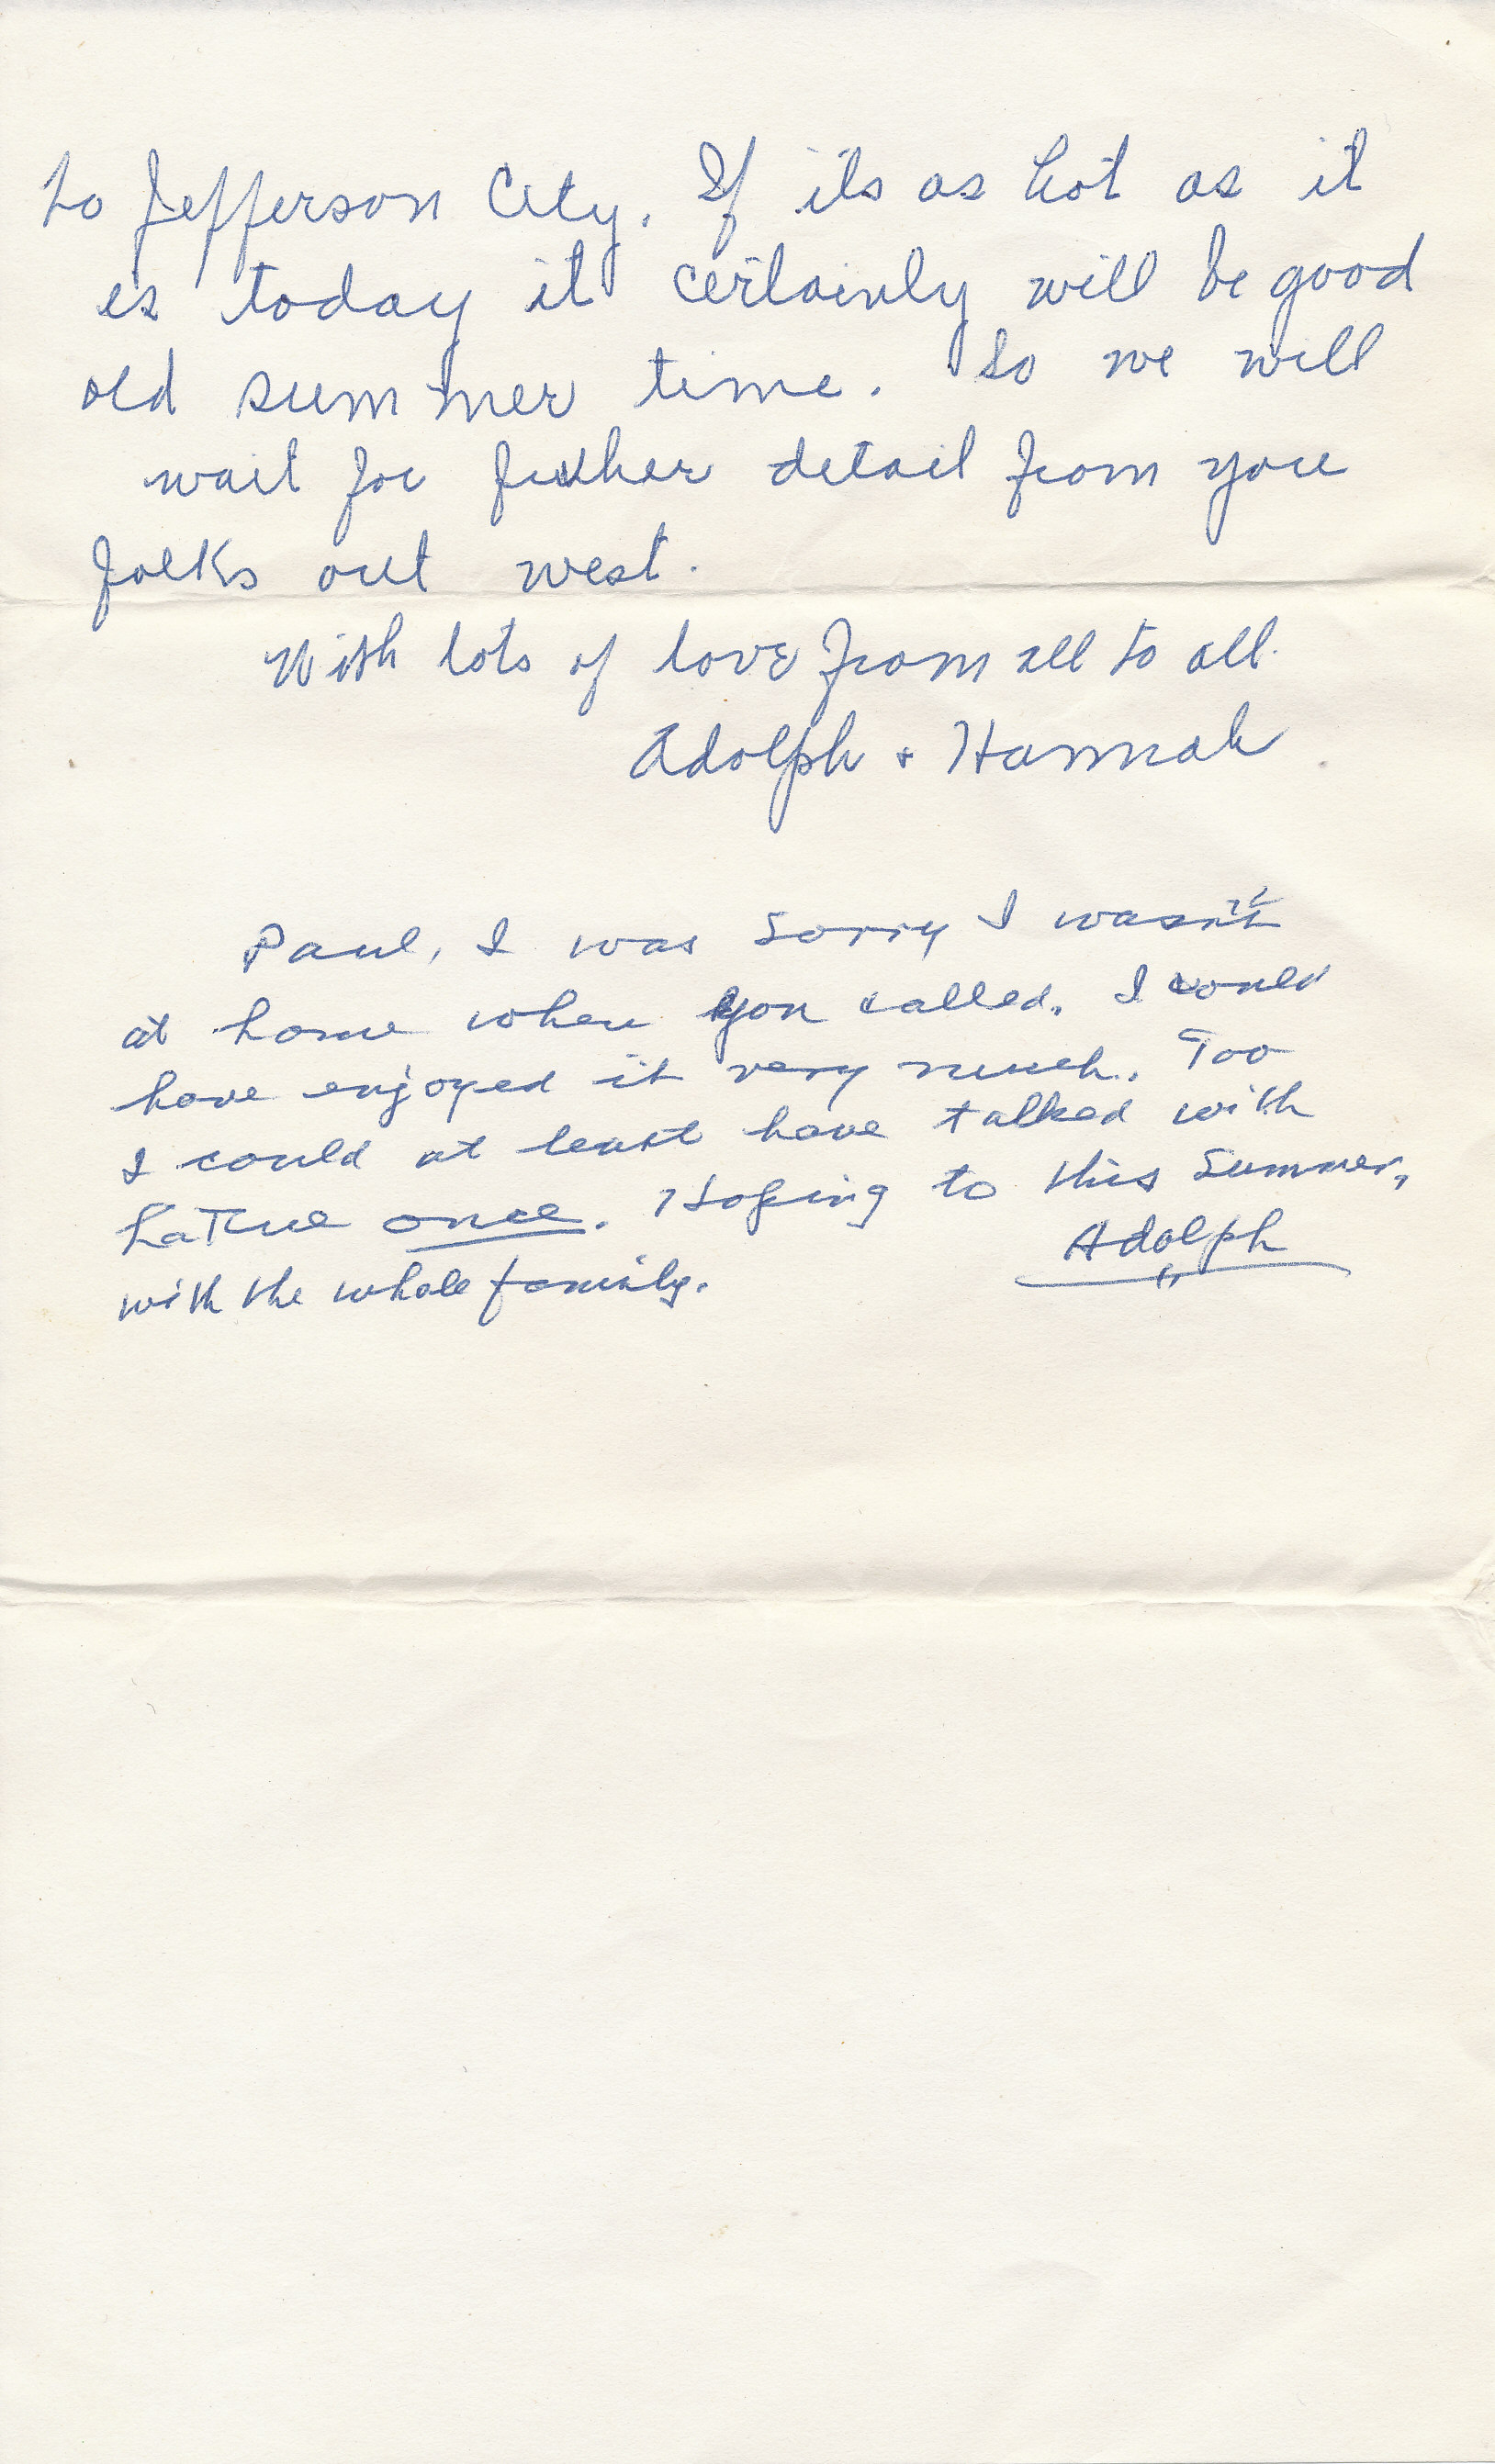 to Jefferson City. If its as hot as it
is today it certainly will be good
old summer time. So we will
wait for futher detail from you
folks out west.
With lots of love from all to all.
Adolph + Hannah
Paul, I was sorry I wasn't
at home when you called. I would
have enjoyed it very much. Too
I could at least have talked with
once. Hoping to this Summer,
with the whole family.
Adolph